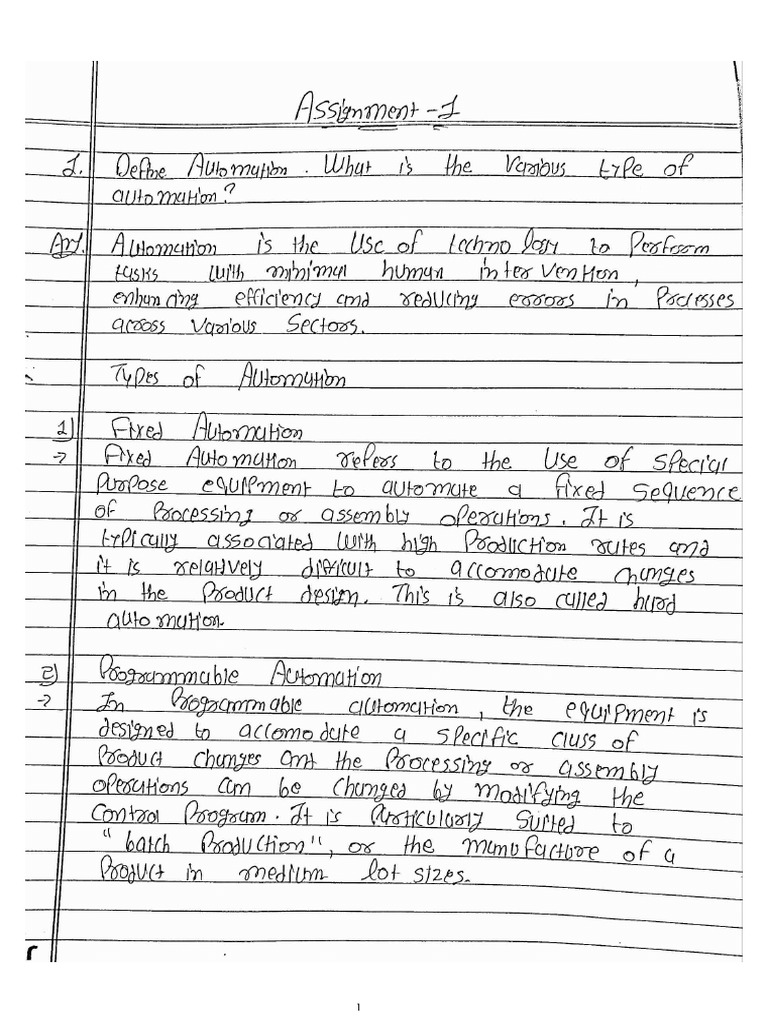 Assignment - 1
1. Define Automation. What is the various type of
automation?
Ans. Automation is the use of technology to perform
tasks with minimal human intervention,
enhancing efficiency and reducing errors in processes
across various sectors.
Types of Automation
1) Fixed Automation
→ Fixed Automation refers to the use of special
purpose equipment to automate a fixed sequence
of processing or assembly operations. It is
typically associated with high production rates and
it is relatively difficult to accomodate changes
in the product design. This is also called hard
automation.
2) Programmable Automation
→ In programmable automation, the equipment is
designed to accomodate a specific class of
product changes ant the processing or assembly
operations can be changed by modifying the
control program. It is particularly suited to
"batch production", or the manufacture of a
product in medium lot sizes.
r
1